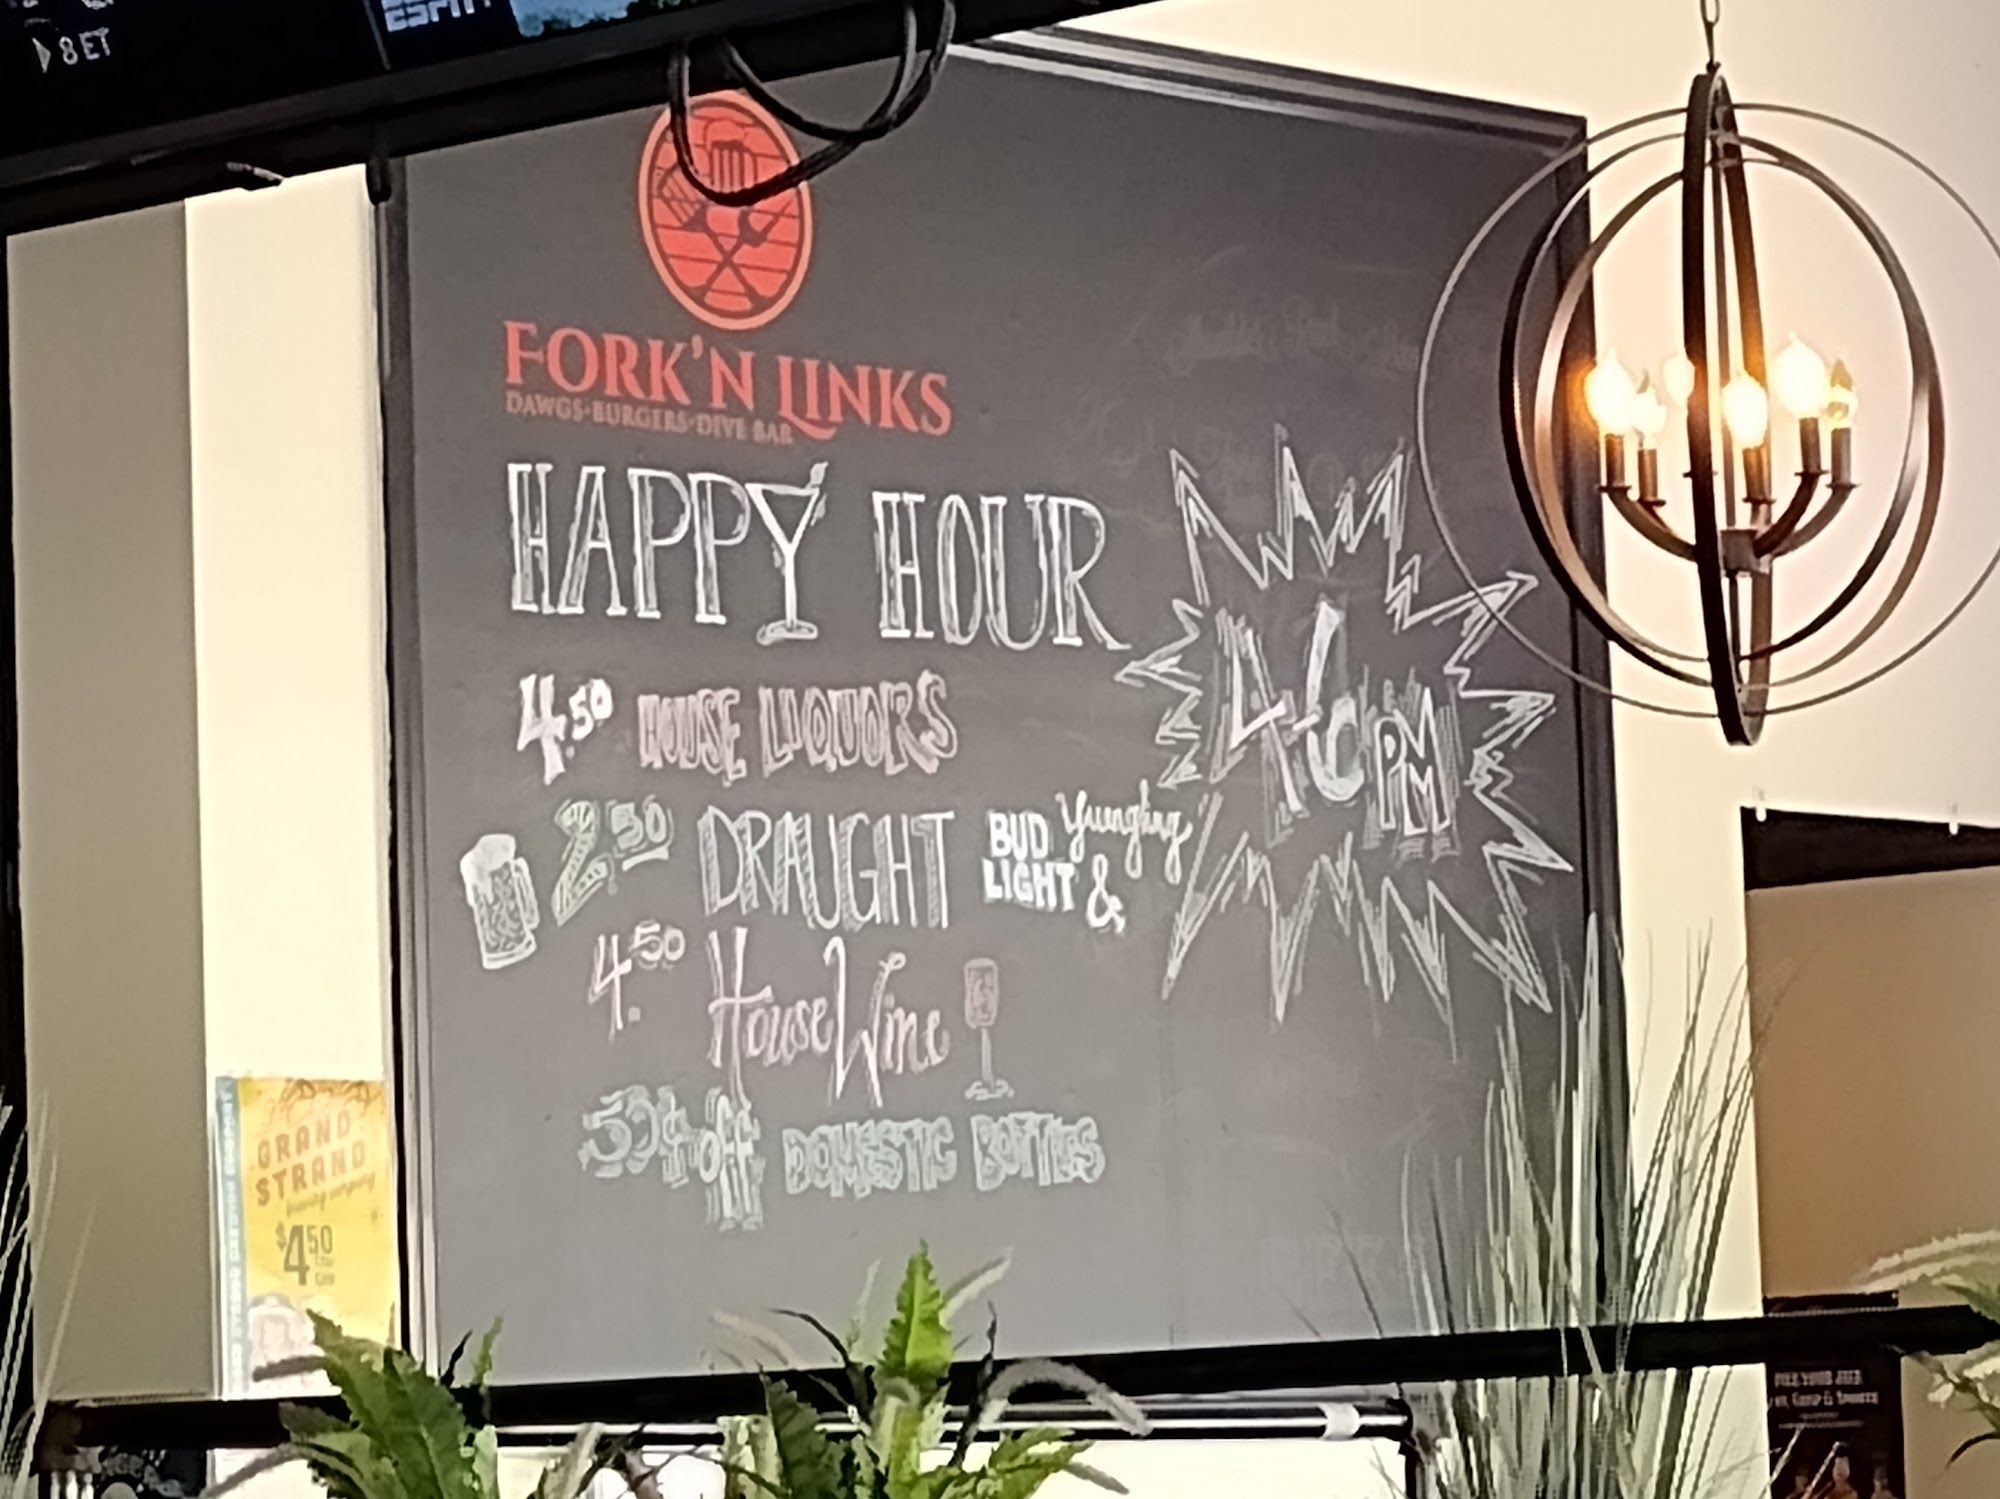 ESPN
8 ET
FORK'N LINKS
DAWGS·BURGERS·DIVE BAR
HAPPY HOUR
4-6PM
4.50 HOUSE LIQUORS
2.50 DRAUGHT BUD LIGHT & Yuengling
4.50 House Wine
50¢ off DOMESTIC BOTTLES
GRAND
STRAND
brewing company
$4.50